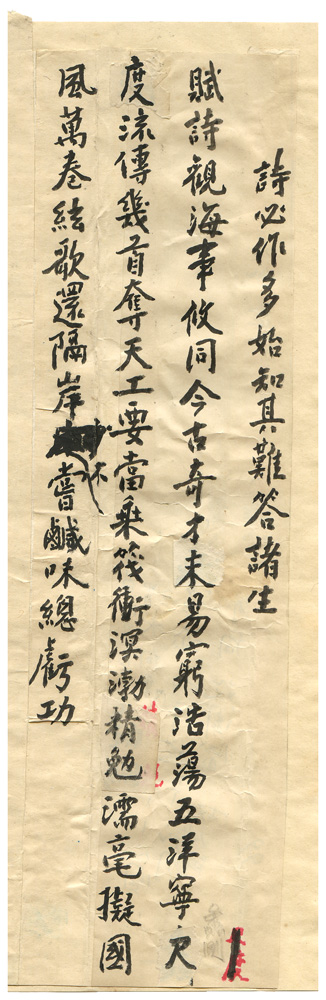 詩必作多始知其難答諸生
賦詩觀海事攸同今古奇才未易窮浩蕩五洋寧尺
度流傳幾首奪天工要當乘筏衝溟渤精勉濡毫擬國
風萬卷絃歌還隔岸未嘗鹹味總虧功